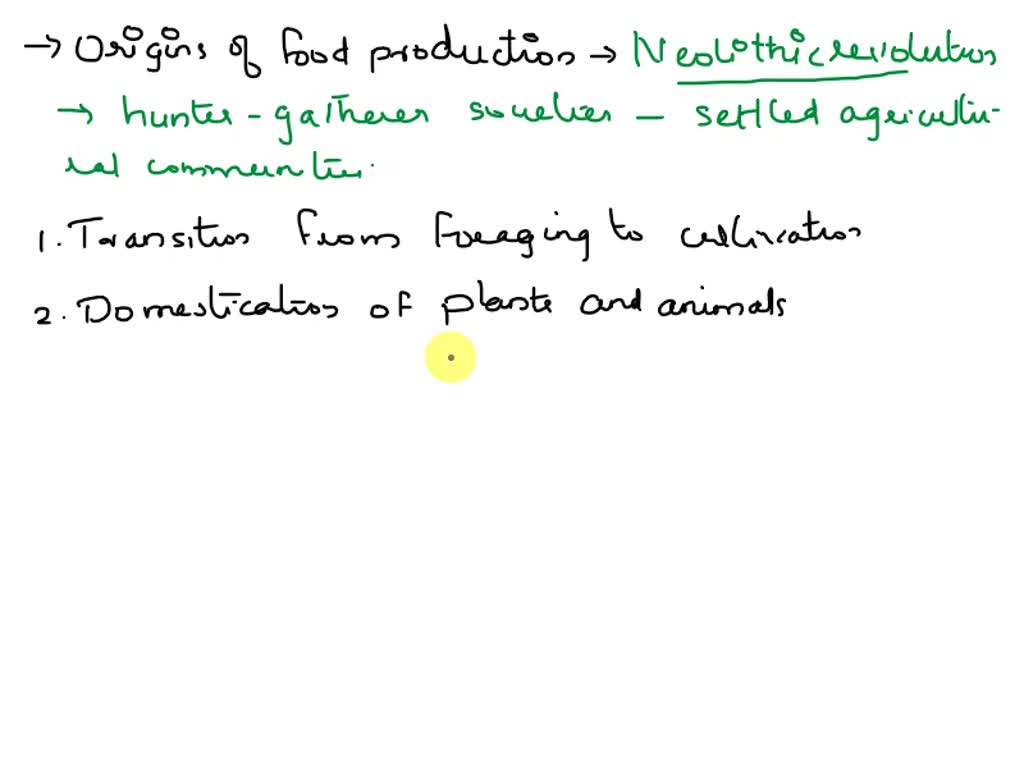 → Origins of food production → Neolithic revolution
→ hunter-gatherer societies – settled agricultu-
ral communities.
1. Transition from foraging to cultivation
2. Domestication of plants and animals